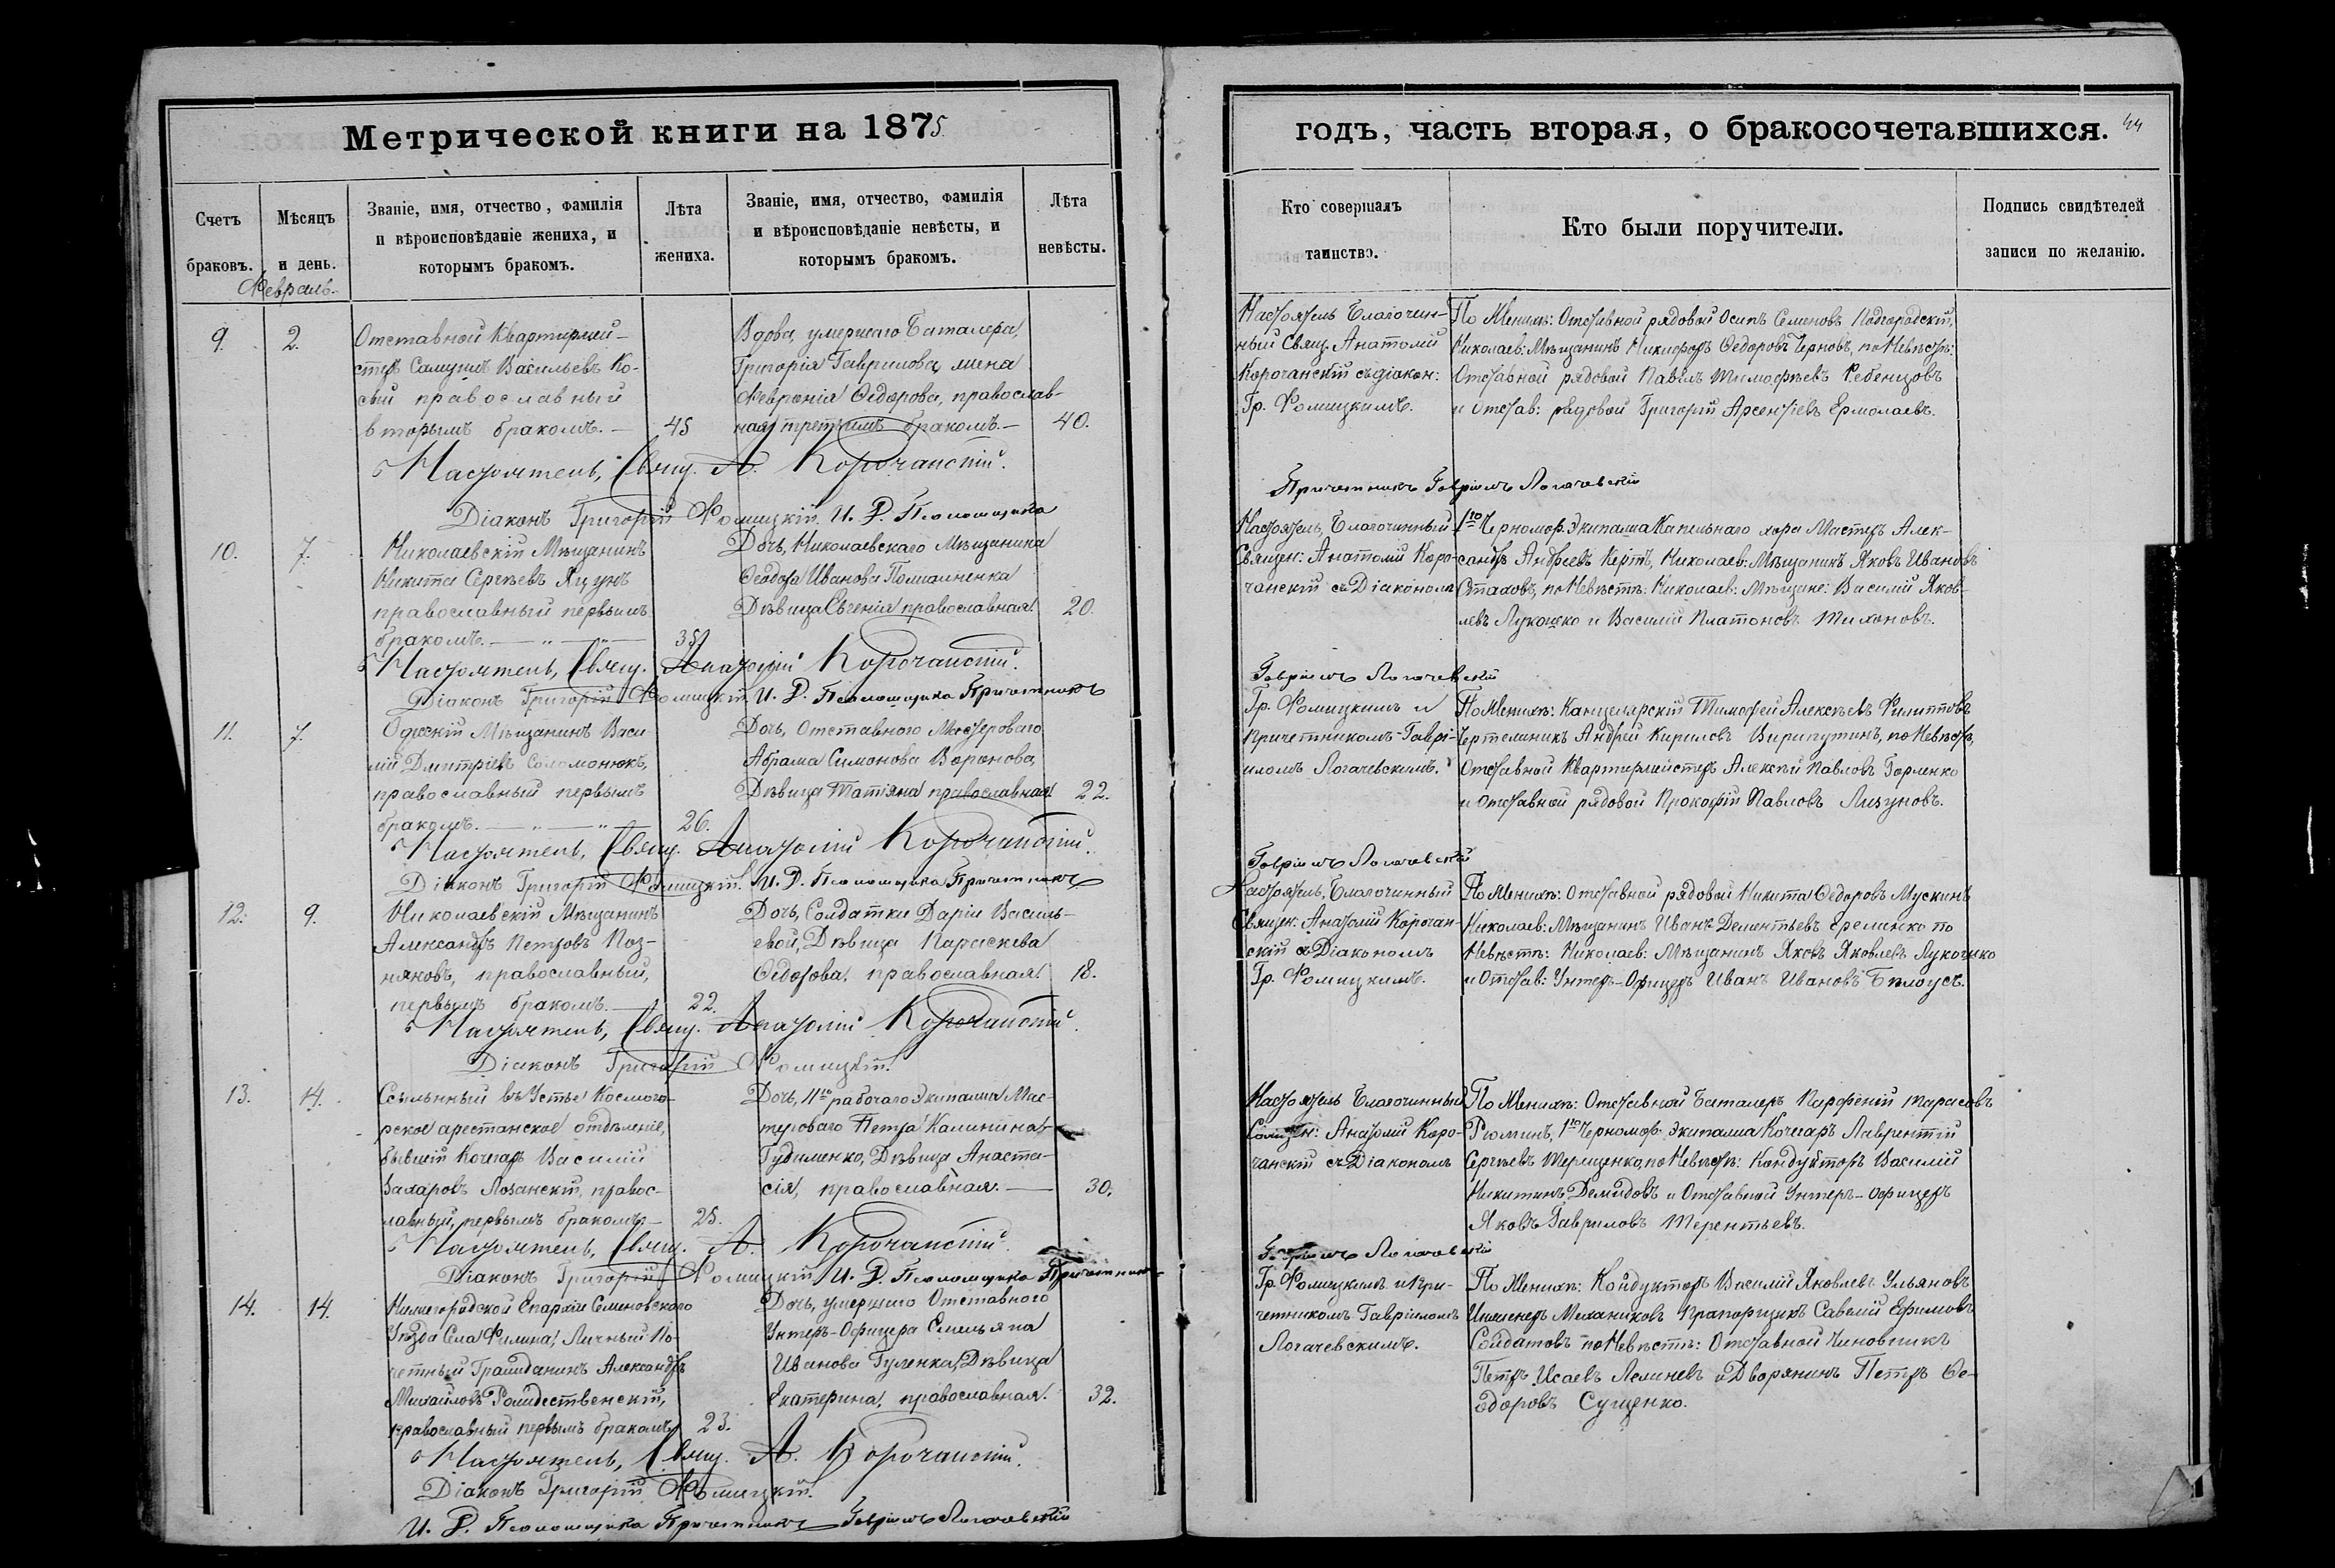 Метрической книги на 1875
Счетъ браковъ.
Мѣсяцъ и день.
Званіе, имя, отчество, фамилія и вѣроисповѣданіе жениха, и которымъ бракомъ.
Лѣта жениха.
Званіе, имя, отчество, фамилія и вѣроисповѣданіе невѣсты, и которымъ бракомъ.
Лѣта невѣсты.
Февраль
9.
2.
Отставной Квартирмей-
стръ Самуилъ Васильевъ Ко-
сый православный
вторымъ бракомъ.
45
Вдова, умершаго Баталера,
Григорія Гаврилова, жена
Февронія Ѳедорова, православ-
ная третьимъ бракомъ.
40.
Настоятель, Свящ. А. Корочанскій.
Діаконъ Григорій Фомицкій. И. Д. Псаломщика
10.
7.
Николаевскій Мѣщанинъ
Никита Сергѣевъ Яцунъ
православный первымъ
бракомъ.
35
Дочь, Николаевскаго Мѣщанина
Ѳеодора Иванова
Дѣвица Евгенія православная
20.
Настоятель, Свящ. Анатолій Корочанскій.
Діаконъ Григорій Фомицкій. И. Д. Псаломщика Причетникъ
11.
7.
Одесскій Мѣщанинъ Васи
лій Дмитріевъ Соломонюкъ,
православный первымъ
бракомъ.
26.
Дочь, Отставного Мастероваго
Абрама Симонова Воронова,
Дѣвица Татіяна православная
22.
Настоятель, Свящ. Анатолій Корочанскій.
Діаконъ Григорій Фомицкій. И. Д. Псаломщика Причетникъ
12.
9.
Николаевскій Мѣщанинъ
Александръ Петровъ Поз-
няковъ, православный,
первымъ бракомъ.
22.
Дочь, Солдатки Даріи Василь-
евой, Дѣвица Параскева
Ѳедорова, православная
18.
Настоятель, Свящ. Анатолій Корочанскій.
Діаконъ Григорій Фомицкій.
13.
14.
Ссыльный въ Усть
рское арестанское отдѣленіе,
бывшій Кочегаръ Василій
Захаровъ Лозанскій, правос-
лавный, первымъ бракомъ
25.
Дочь, 11го рабочаго Экипажа Мас-
тероваго Петра Калинина
Гудименко, Дѣвица Анаста-
сія, православная.
30.
Настоятель, Свящ. А. Корочанскій.
Діаконъ Григорій Фомицкій. И. Д. Псаломщика Причетникъ
14.
14.
Нижегородской Епархіи Семеновскаго
Уѣзда Села Филина, Личный По-
четный Гражданинъ Александръ
Михайловъ Рождественскій,
православный первымъ бракомъ
23.
Дочь, умершаго Отставного
Унтеръ-Офицера Емельяна
Иванова Гуленка, Дѣвица
Екатерина, православная.
32.
Настоятель, Свящ. А. Корочанскій.
Діаконъ Григорій Фомицкій.
И. Д. Псаломщика Причетникъ Гавріилъ Логачевскій
годъ, часть вторая, о бракосочетавшихся.
44
Кто совершалъ таинство.
Кто были поручители.
Подпись свидѣтелей записи по желанію.
Настоятель Благочин-
ный Свящ. Анатолій
Корочанскій съ діакон:
Гр. Фомицкимъ.
По Женихѣ: Отставной рядовой Осипъ Семеновъ Подгородскій,
Николаев: Мѣщанинъ Никифоръ Ѳедоровъ Черновъ, по Невѣстѣ:
Отставной рядовой Павелъ Тимофѣевъ Ребенцовъ
и Отстав: рядовой Григорій Арсентіевъ Ермолаевъ.
Причетникъ Гавріилъ Логачевскій
Настоятель, Благочинный
Священ: Анатолій Коро-
чанскій съ Діакономъ
1го Черномор. Экипажа Капельнаго хора Мастеръ Алек-
сандръ Андреевъ Кертъ, Николаев: Мѣщанинъ Яковъ Ивановъ
Стаховъ, по Невѣстѣ: Николаев: Мѣщане: Василій Яков-
левъ Лукошко и Василій Платоновъ Тихоновъ.
Гавріилъ Логачевскій
Гр. Фомицкимъ и
Причетникомъ Гаврі-
иломъ Логачевскимъ.
По Женихѣ: Канцелярскій Тимофей Алексѣевъ Филиповъ
Чертежникъ Андрей Кириловъ Вирипутинъ, по Невѣстѣ,
Отставной Квартирмейстеръ Алексѣй Павловъ Горленко
и Отставной рядовой Прокофій Павловъ Лизуновъ.
Гавріилъ Логачевскій
Настоятель, Благочинный
Священ: Анатолій Корочан-
скій съ Діакономъ
Гр. Фомицкимъ.
По Женихѣ: Отставной рядовой Никита Ѳедоровъ Мускинъ
Николаев: Мѣщанинъ Иванъ Дементьевъ Еременко по
Невѣстѣ: Николаев: Мѣщанинъ Яковъ Яковлевъ Лукошко
и Отстав: Унтеръ-Офицеръ Иванъ Ивановъ Бѣлоусъ.
Настоятель Благочинный
Священ: Анатолій Коро-
чанскій съ Діакономъ
По Женихѣ: Отставной Баталеръ Парфеній Тарасовъ
Рюминъ, 1го Черномор. Экипажа Кочегаръ Лаврентій
Сергѣевъ Терещенко, по Невѣстѣ: Кондукторъ Василій
Никитинъ Демидовъ и Отставной Унтеръ-Офицеръ
Яковъ Гавриловъ Терентьевъ.
Гавріилъ Логачевскій
Гр. Фомицкимъ и При-
четникомъ Гавріиломъ
Логачевскимъ.
По Женихѣ: Кондукторъ Василій Яковлевъ Ульяновъ
Инженеръ Механиковъ Прапорщикъ Савелій Ефимовъ
Солдатовъ по Невѣстѣ: Отставной Чиновникъ
Петръ Исаевъ и Дворянинъ Петръ Ѳе-
одоровъ Сущенко.